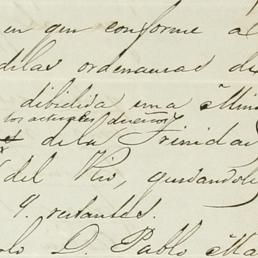 en que conforme al
de las ordenanzas de
dibidida en a Mina
los actuales dueños
de la Trinidad
del Rio, quedandole
9. restantes.
D. Pablo Ma